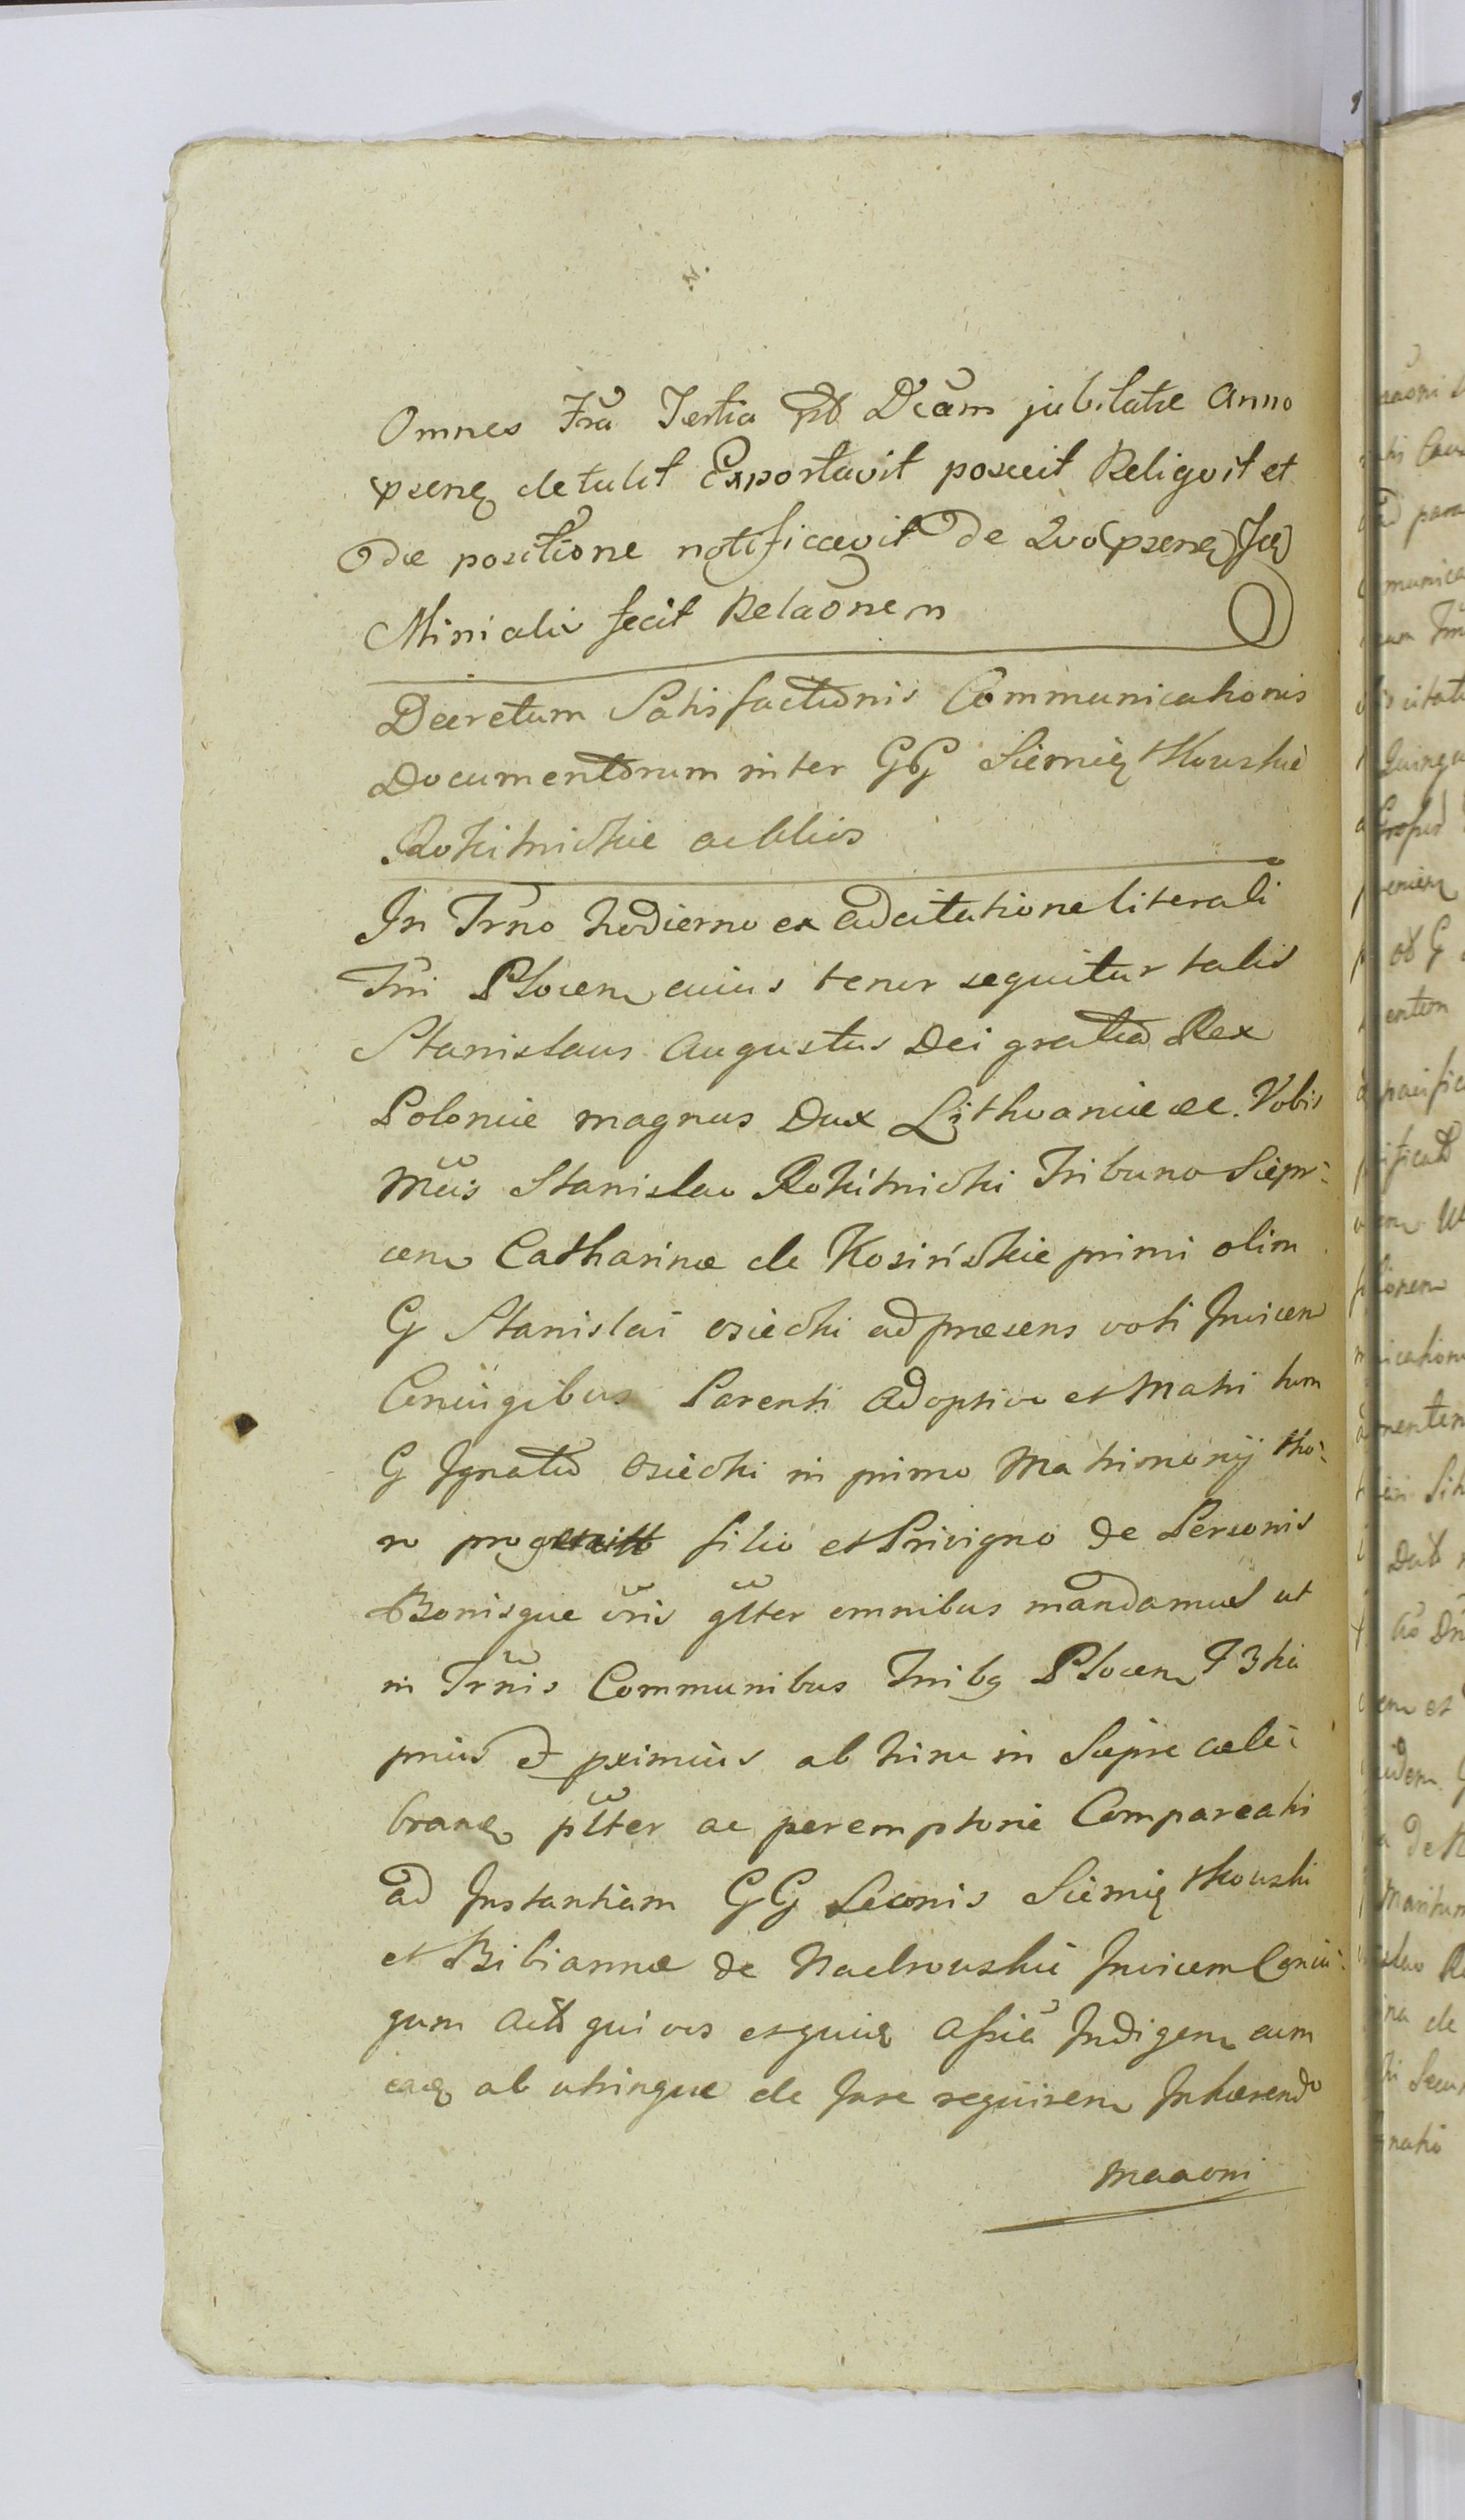 Omnes Fra Tertia pst Dcam jubilatæ Anno
psenq detulit Exportavit posuit Reliquit et
de positione notificavit de Quo (psenq) Jcq
Minialis fecit Relaonem
Decretum Satisfactionis Communicationis
Documentorum inter GG Siemiętkowskie
Rokitnickie ac alios
In Trno hodierno ex adcitatione literali
Tri Plocen cuius tenor sequitur talis
Stanislaus Augustus Dei gratia Rex
Poloniæ magnus Dux Lithvaniæ &c. Vobis
Mcis Stanislao Rokitnicki Tribuno Siepr:
cen Catharinæ de Kosińskie primi olim
G Stanislai Osiecki ad præsens voti Invicem
Coniugibus Parenti Adoptivo et Matri tum
G Ignatio Osiecki in primo Matrimonij tho:
ro filio et Privigno de Personis
Bonisque vris glter omnibus mandamus ut
in Trnis Communibus Tribq Plocen
prius et pximius ab hinc in Siepre cele:
branq plter ac peremptorie Compareatis
ad Instantiam GG Leonis Siemiętkowski
et Bibiannæ de Naclrowskie Invicem Coniu:
gum Actt qui vos esquius Assia Indigen cum
eaq ab utrinque de Jure requiren Inhærendo
Maaoni